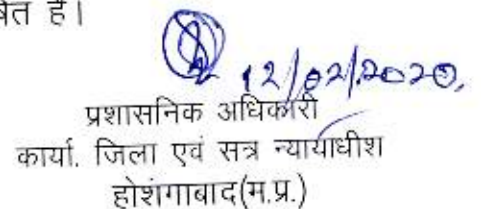 षित है।
12/02/2020.
प्रशासनिक अधिकारी
कार्या. जिला एवं सत्र न्यायाधीश
होशंगाबाद(म.प्र.)